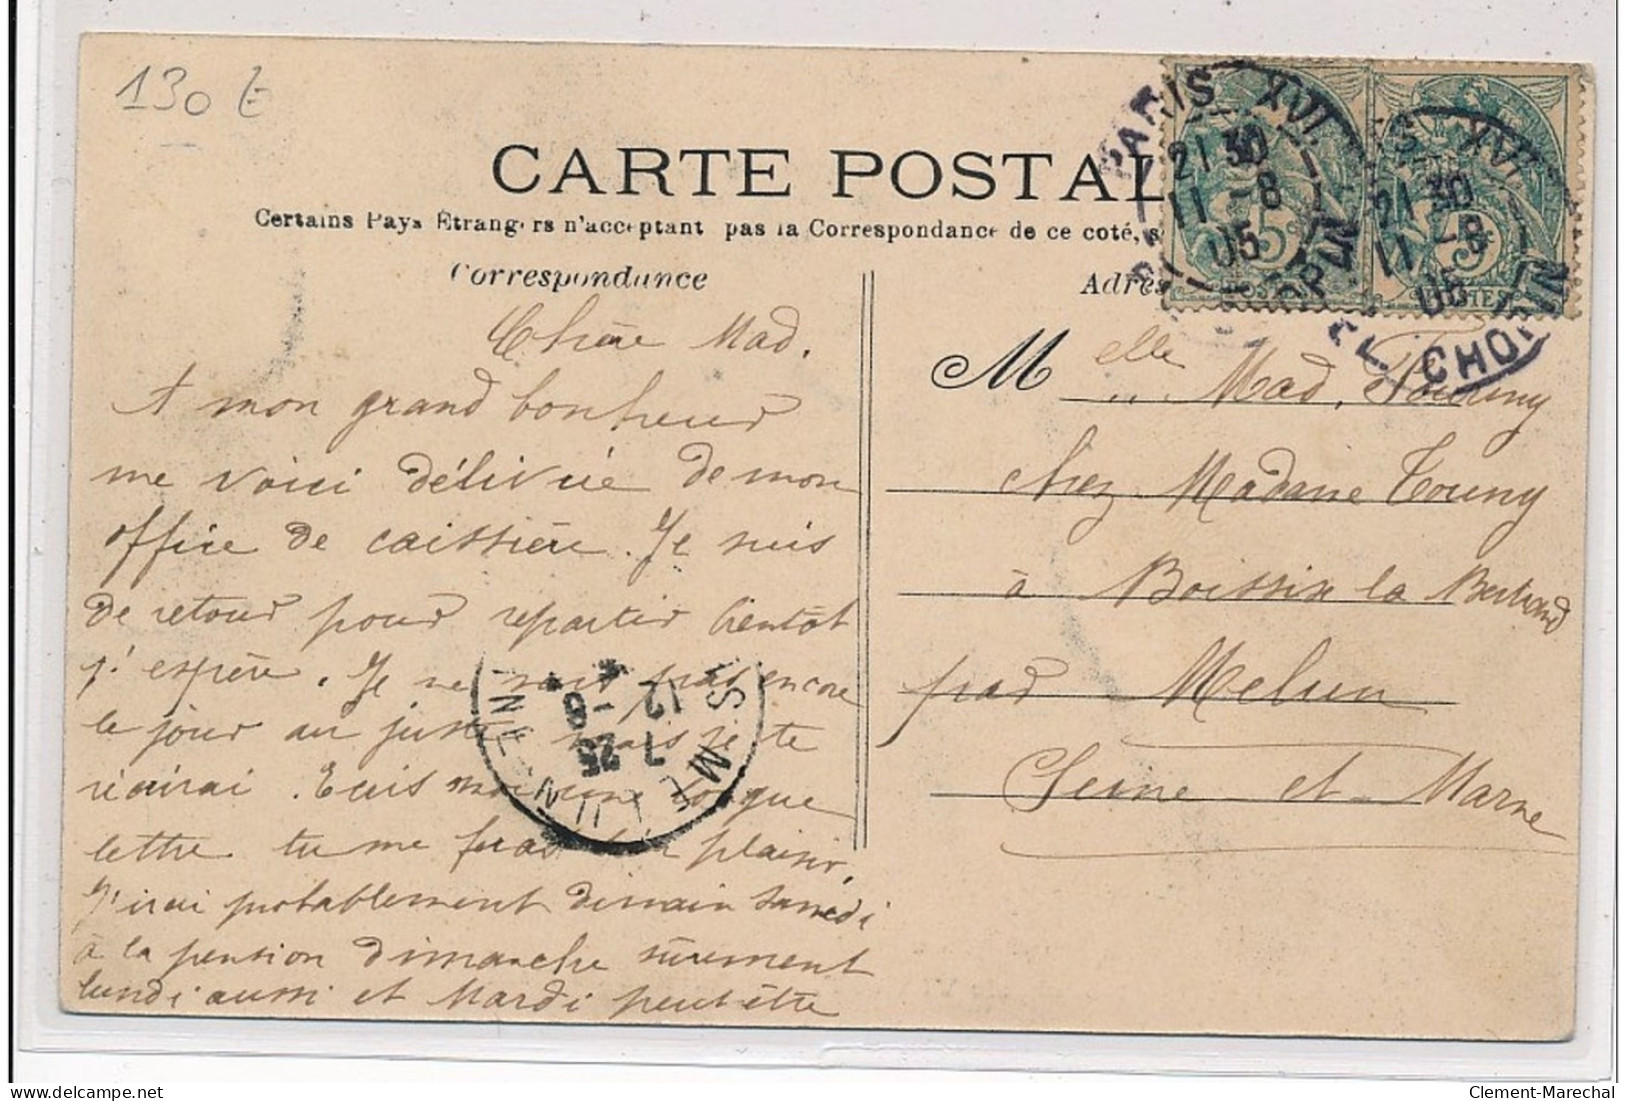 130 €
CARTE POSTAL
Certains Pays Étrangers n'acceptant pas la Correspondance de ce coté, s
Correspondance
Adres
PARIS XVI
21 30
11 -8
05
CHOPIN
PARIS XVI
21 30
11 -8
05
CHOPIN
5c
5c
Chère Mad.
A mon grand bonheur
me voici délivrée de mon
office de caissière. Je suis
de retour pour repartir bientôt
j'espère. Je ne sais pas encore
le jour au juste mais je te
récrirai. Ecris moi une longue
lettre tu me feras bien plaisir.
J'irai probablement demain samedi
à la pension dimanche sûrement
lundi aussi et Mardi peut être
7 25
12 -8
MELUN
Melle Mad. Tourny
chez Madame Tourny
à Boissise la Bertrand
par Melun
Seine et Marne
Clement-Marechal